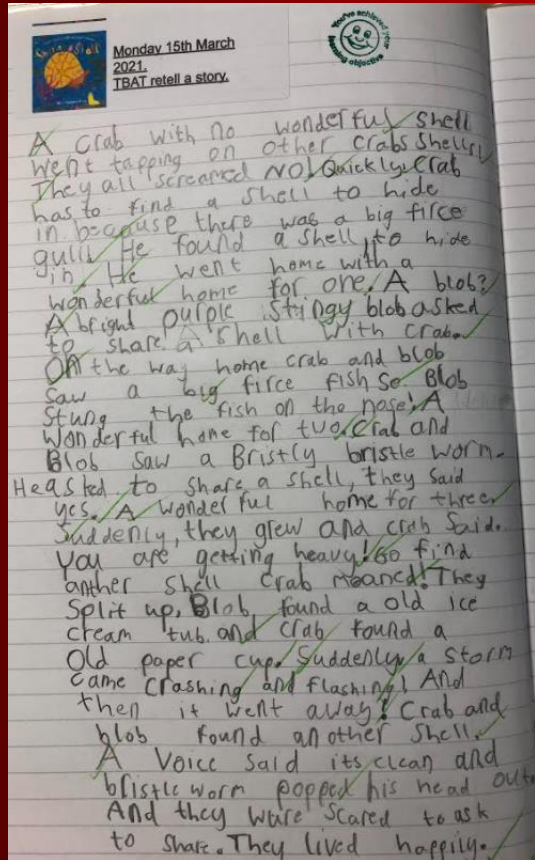 Monday 15th March
2021.
TBAT retell a story.
You've achieved your
learning objective
A crab with no wonderful shell
went tapping on other crabs shells,
They all screamed NO! Quickly, Crab
has to find a shell to hide
in because there was a big firce
gull. He found a shell to hide
in. He went home with a
wonderful home for one. A blob?
A bright purple stingy blob asked
to share a shell with crab.
On the way home crab and blob
saw a big firce fish so Blob
stung the fish on the nose! A
wonderful home for two. Crab and
Blob saw a Bristly bristle worm.
He asked to share a shell, they said
yes. A wonderful home for three.
Suddenly, they grew and crab said.
You are getting heavy! Go find
anther shell Crab moaned! They
split up, Blob found a old ice
cream tub. and crab found a
Old paper cup. Suddenly, a storm
came crashing and flashing! And
then it went away! Crab and
blob found another shell.
A Voice said its clean and
bristle worm popped his head out.
And they wure scared to ask
to share. They lived happily.